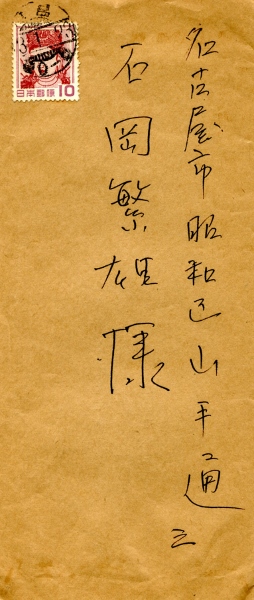 名古屋市昭和区山手通三
石岡繁雄様
日本郵便 10